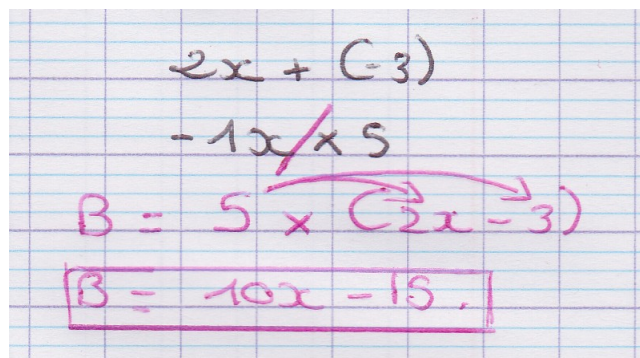 2x + (-3)
-1x × 5
B = 5 × (2x - 3)
B = 10x - 15.